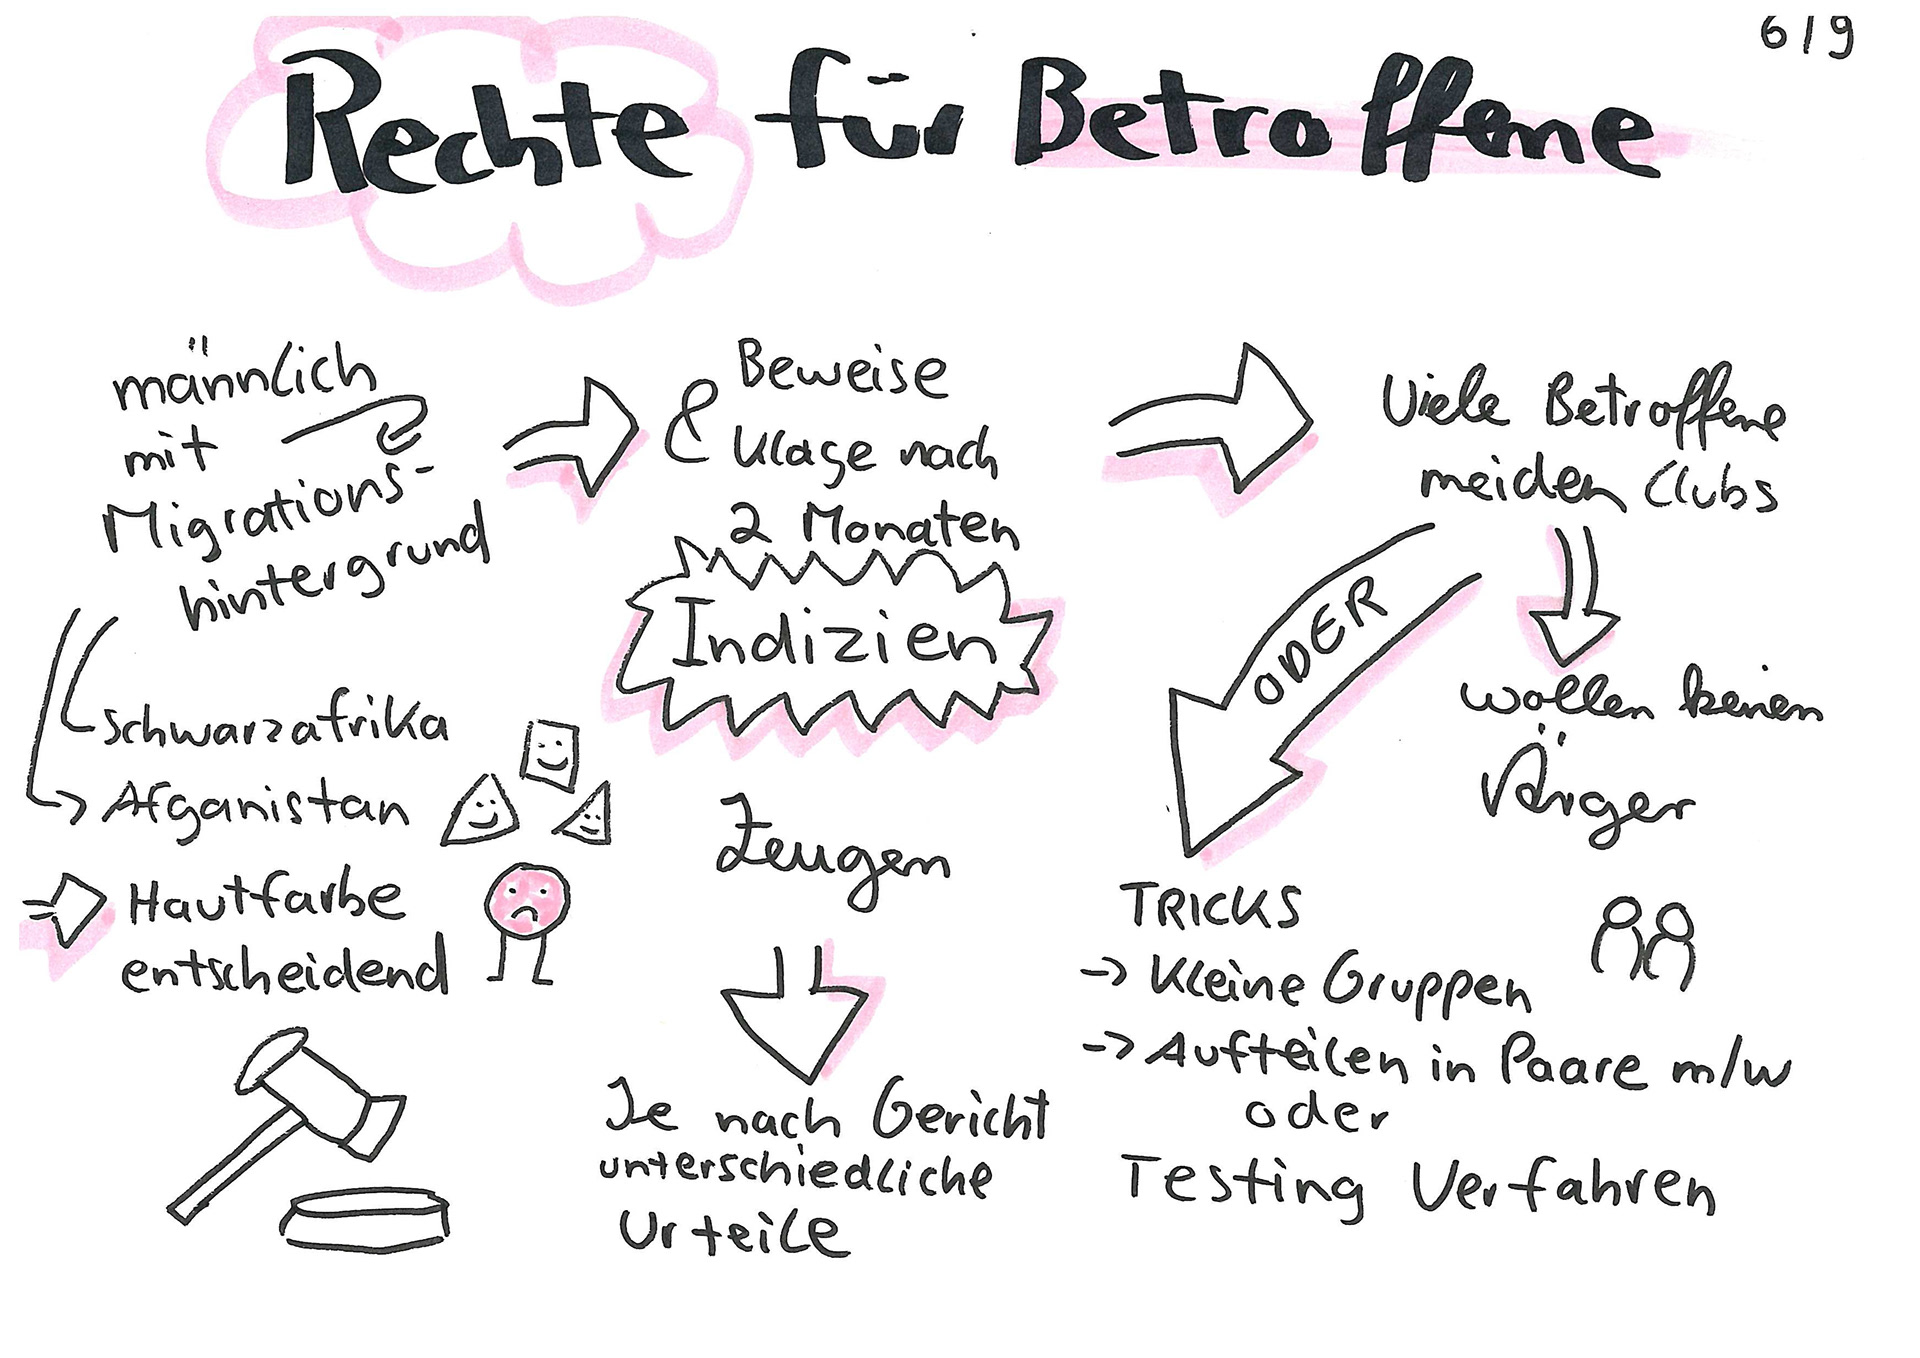 6/9
Rechte für Betroffene
männlich
mit
Migrations-
hintergrund
Schwarzafrika
Afganistan
Hautfarbe
entscheidend
Beweise
& Klage nach
2 Monaten
Indizien
Zeugen
Je nach Gericht
unterschiedliche
Urteile
Viele Betroffene
meiden Clubs
ODER
wollen keinen
Ärger
TRICKS
-> Kleine Gruppen
-> Aufteilen in Paare m/w
oder
Testing Verfahren